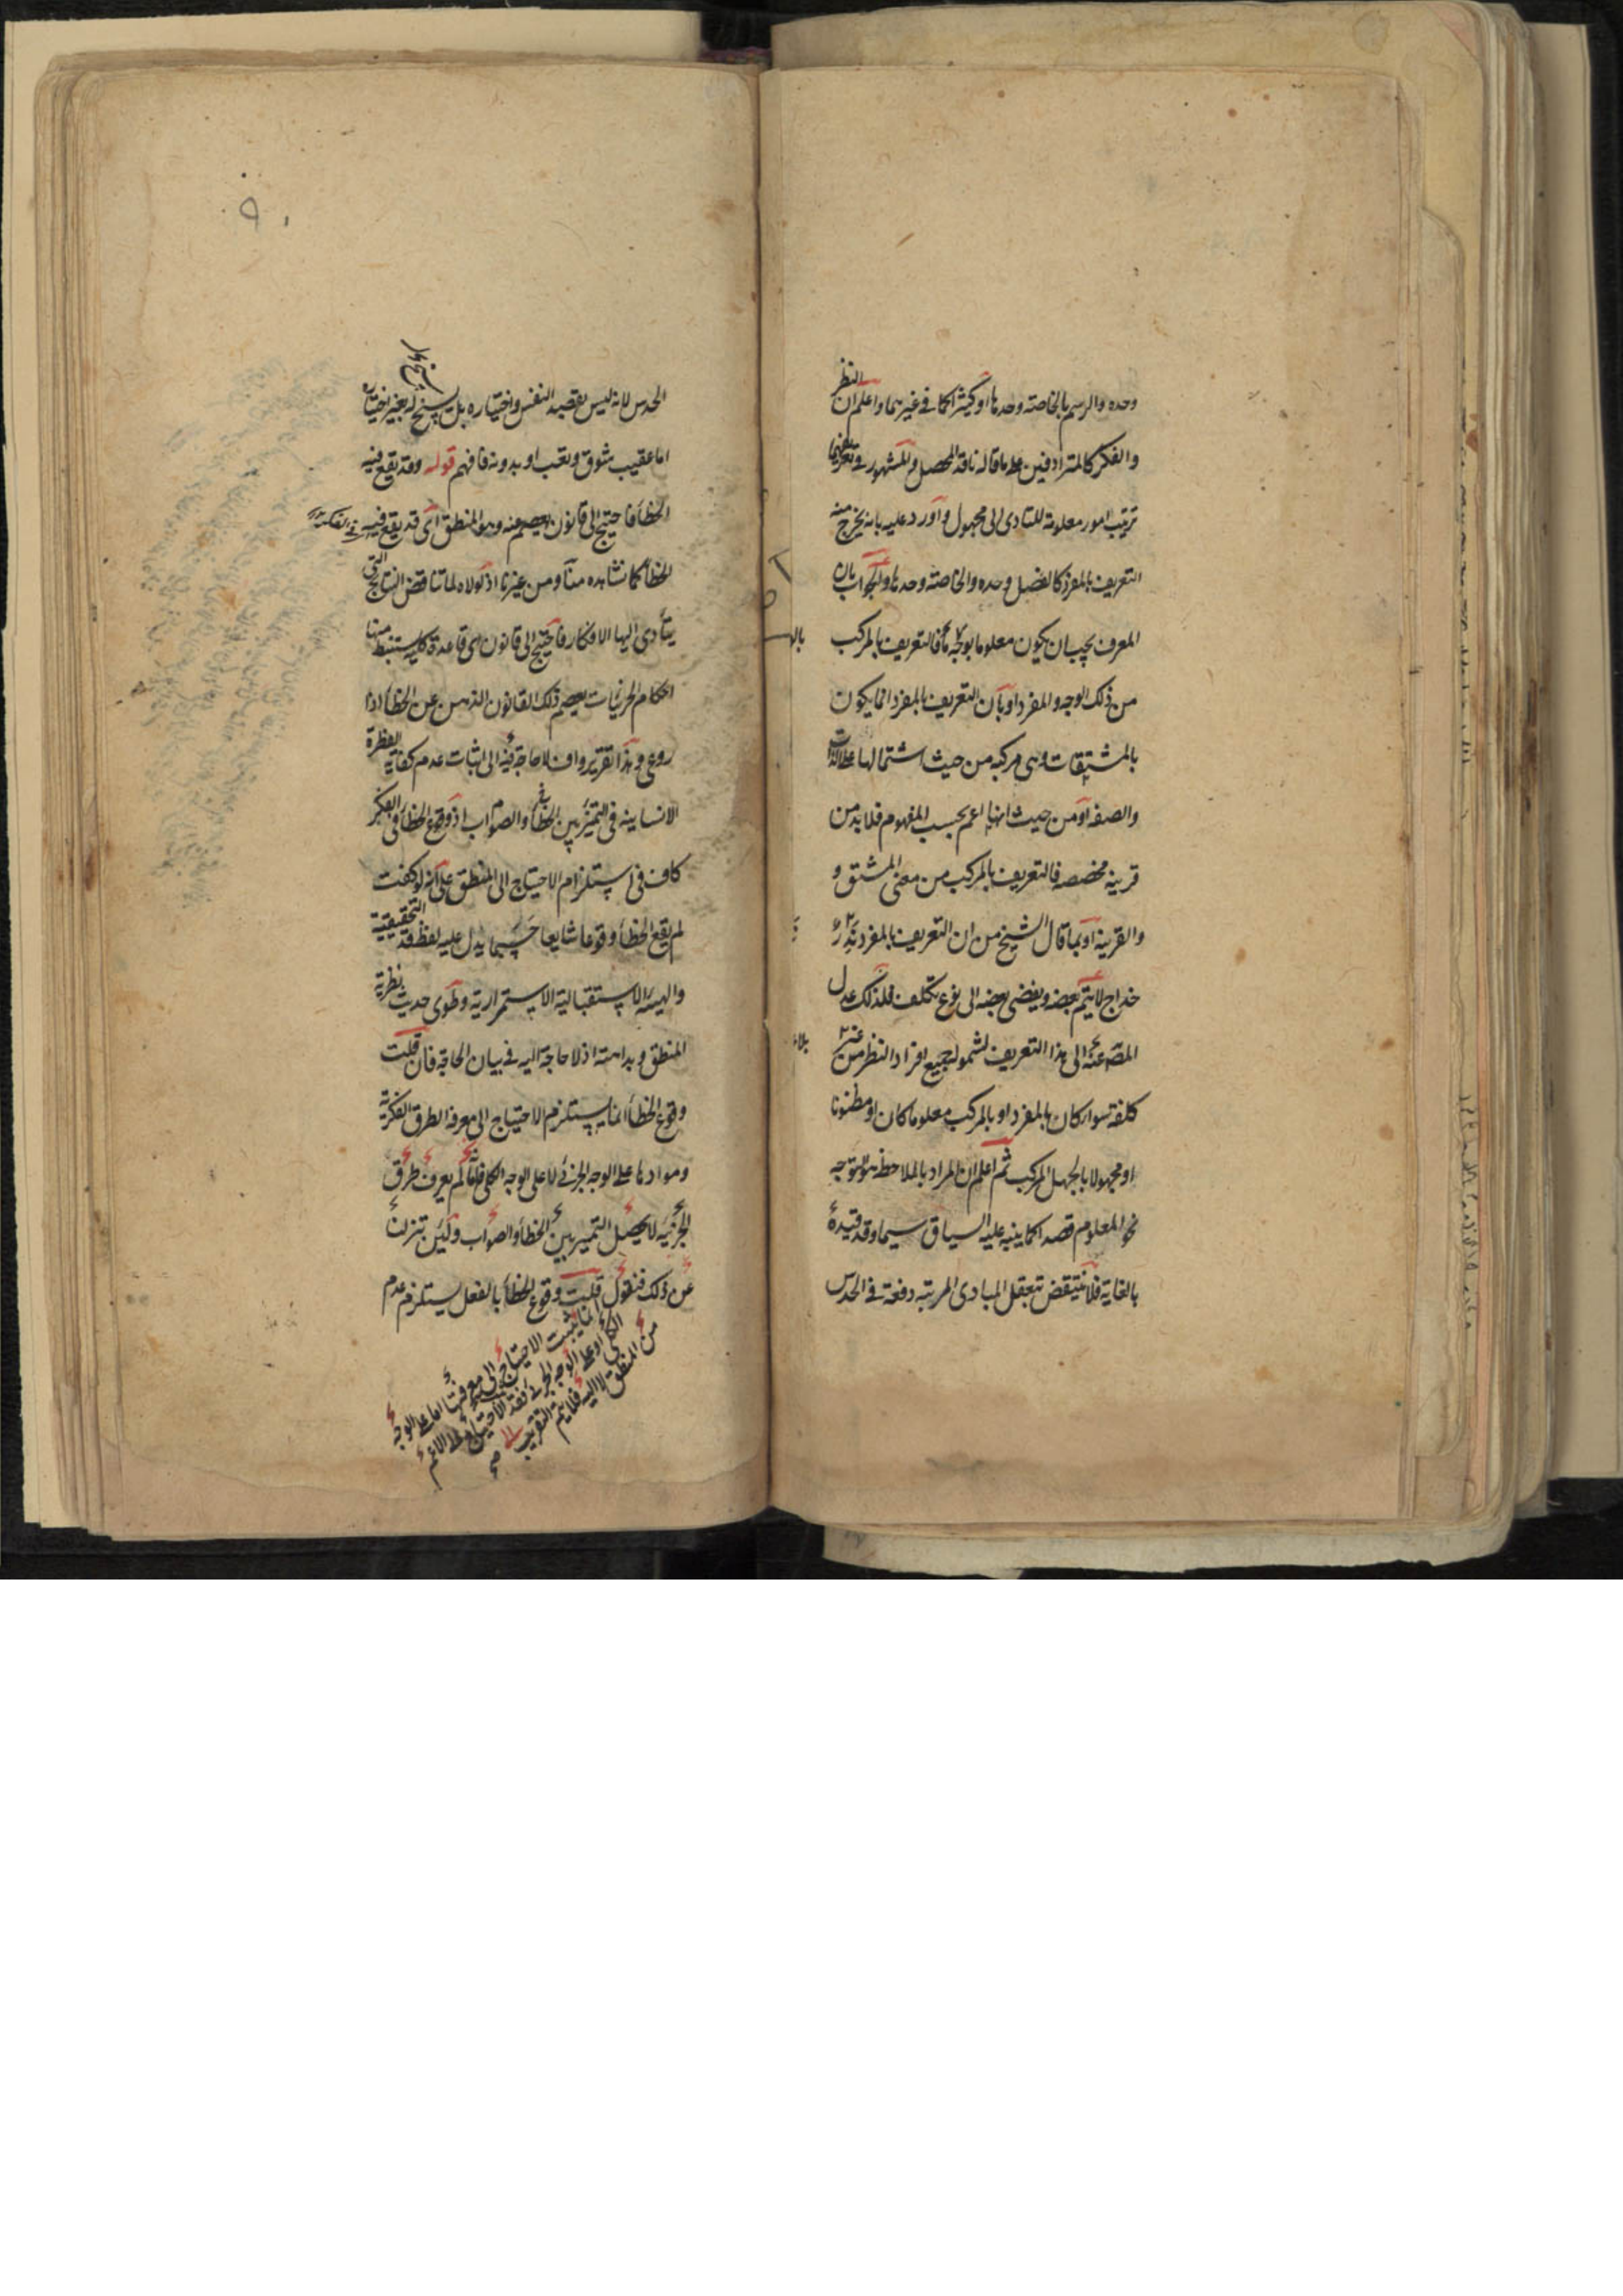 وحده والرسم بالخاصة وحدها او كثيرا كما في غيرهما واعلم ان النظر
والفكر كالمترادفين على ما قاله ناقد المحصل والمشهور في تعريفهما
ترتيب امور معلومة للتادى الى مجهول واورد عليه بانه يخرج منه
التعريف بالمفرد كالفصل وحده والخاصة وحدها والجواب بان
المعرف يجب ان يكون معلوما بوجه ما فالتعريف بالمركب
من ذلك الوجه والمفرد او بان التعريف بالمفرد انما يكون
بالمشتقات وهى مركبة من حيث اشتمالها على الذات
والصفة او من حيث انها اعم بحسب المفهوم فلا بد من
قرينة مخصصه فالتعريف بالمركب من معنى المشتق و
والقرينة او بما قال الشيخ من ان التعريف بالمفرد نزر
خداج لا يتم بعضه ويفضى بعضه الى نوع تكلف فلذلك عدل
المص عنه الى هذا التعريف لشموله جميع افراد النظر من غير
كلفة سواء كان بالمفرد او بالمركب معلوما كان او مظنونا
او مجهولا بالجهل المركب ثم اعلم ان المراد بالملاحظة هو توجه
نحو المعلوم قصدا كما ينبه عليه السياق سيما وقد قيده
بالغاية فلا ينتقض بتعقل المبادى المرتبه دفعة في الحدس
الحدس لانه ليس بقصد النفس واختياره بل يسنح له بغير اختياره
اما عقيب شوق وتعب او بدونه فافهم قوله وقد يقع فيه
الخطأ فاحتيج الى قانون يعصم عنه وهو المنطق اى قد يقع فيه
الخطأ كما نشاهده منا ومن غيرنا اذ لولاه لما تناقض النتائج التى
يتأدى اليها الافكار فاحتيج الى قانون اى قاعدة كلية يستنبط منها
احكام الجزئيات يعصم ذلك القانون الذهن عن الخطأ اذا
روعى وهذا تقرير واف لا حاجة فيه الى اثبات عدم كفاية الفطرة
الانسانية فى التميز بين الخطأ والصواب اذ وقوع الخطأ فى الفكر
كاف فى استلزام الاحتياج الى المنطق على انه لو كفت
لم يقع الخطأ وقوعا شايعا حسبما يدل عليه لفظ قد التحقيقية
والهيئة الاستقبالية الاستمرارية وطوى حديث نظرية
المنطق وبداهته اذ لا حاجة اليه في بيان الحاجة فان قلت
وقوع الخطأ انما يستلزم الاحتياج الى معرفة الطرق الفكرية
وموادها على الوجه الجزئى لا على الوجه الكلى فلما لم يعرف طرق
الجزئية لا يحصل التميز بين الخطأ والصواب ولئن تنزلنا
عن ذلك فنقول قلت وقوع الخطأ بالفعل يستلزم عدم
انما يثبت الاحتياج الى معرفتها اما على الوجه
الكلى او على الوجه الجزئى
من المنطق لا اليه فلا يتم التقريب